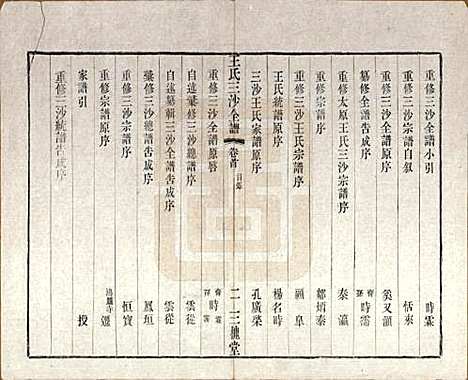 重修三沙全譜小引 時霖
重修三沙全譜自叙 恬來
重修三沙全譜原序 奚又灝
纂修全譜告成序 齊時霑
重修太原王氏三沙宗譜序 秦瀛
重修宗譜序 鄒炳泰
重修三沙王氏宗譜序 顧皋
王氏統譜原序 楊名時
三沙王氏家譜原序 孔廣棨
王氏三沙全譜 卷首 目錄 二 三槐堂
重修三沙全譜原啓 齊時霑
自述彙修三沙全譜序 雲從
自述纂輯三沙全譜告成序 雲從
彙修三沙總譜告成序 鳳垣
重修三沙宗譜序 恒寶
重修宗譜原序 遷
家譜引 授
重修三沙統譜告成序